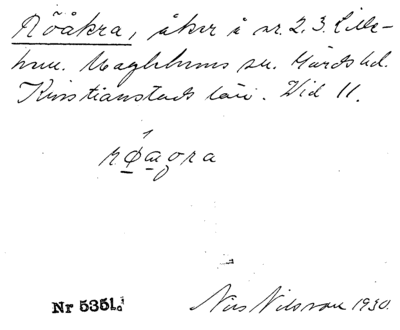 Röåkra, åker å nr. 2, 3. Lille-
hem. Maglehems sn. Gärds hd.
Kristianstads län. Vid 11.
Nr 5351.
Nils Nilsson 1930.